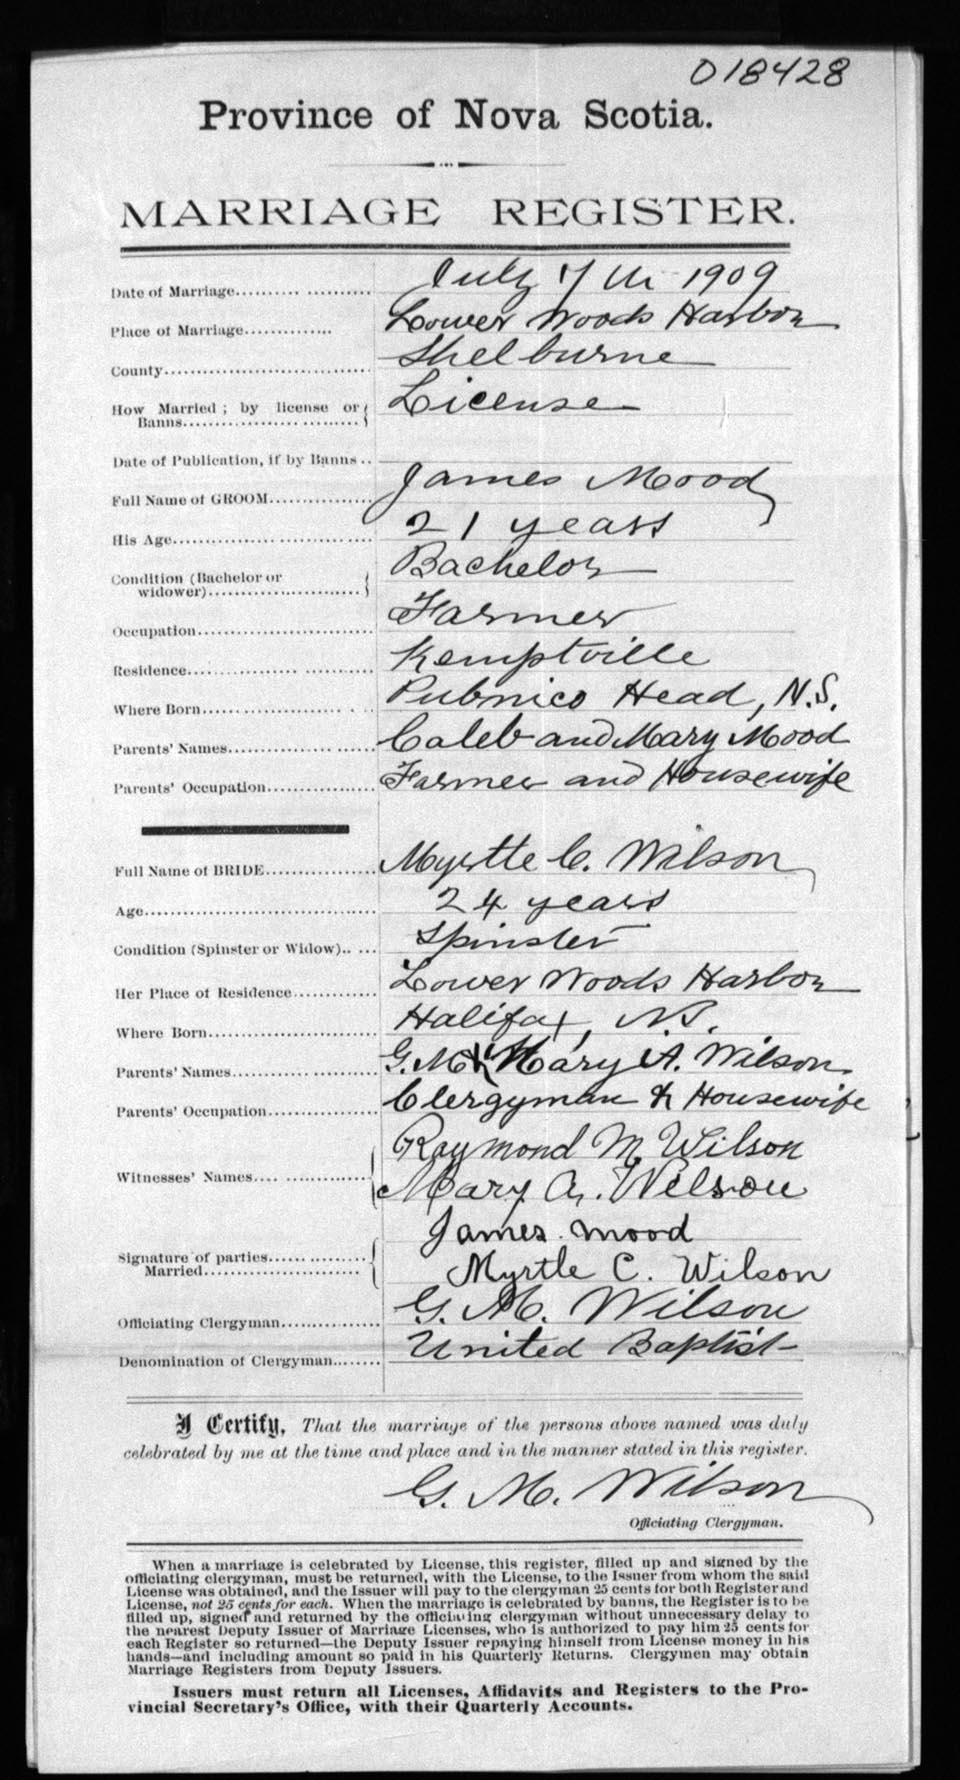 018428
Province of Nova Scotia.
MARRIAGE REGISTER.
Date of Marriage.......... .......... July 7th 1909
Place of Marriage.............. Lower Woods Harbor
County.................................. Shelburne
How Married ; by license or Banns.................................. License
Date of Publication, if by Banns ..
Full Name of GROOM................ James Mood
His Age.................................. 21 years
Condition (Bachelor or widower).................................. Bachelor
Occupation............................. Farmer
Residence................. .......... Kemptville
Where Born.......................... Pubnico Head, N.S.
Parents' Names........................ Caleb and Mary Mood
Parents' Occupation................. Farmer and Housewife
Full Name of BRIDE................. Myrtle C. Wilson
Age....................................... 24 years
Condition (Spinster or Widow).. ... Spinster
Her Place of Residence............. Lower Woods Harbor
Where Born............................ Halifax, N.S.
Parents' Names....................... G. M. & Mary A. Wilson
Parents' Occupation................. Clergyman & Housewife
Witnesses' Names.... ............... Raymond M. Wilson
Mary A. Wilson
James Mood
Signature of parties................ Married.......................... Myrtle C. Wilson
Officiating Clergyman............... G. M. Wilson
Denomination of Clergyman........ United Baptist
I Certify, That the marriage of the persons above named was duly
celebrated by me at the time and place and in the manner stated in this register.
G. M. Wilson
Officiating Clergyman.
When a marriage is celebrated by License, this register, filled up and signed by the
officiating clergyman, must be returned, with the License, to the Issuer from whom the said
License was obtained, and the Issuer will pay to the clergyman 25 cents for both Register and
License, not 25 cents for each. When the marriage is celebrated by banns, the Register is to be
filled up, signed and returned by the officiating clergyman without unnecessary delay to
the nearest Deputy Issuer of Marriage Licenses, who is authorized to pay him 25 cents for
each Register so returned—the Deputy Issuer repaying himself from License money in his
hands—and including amount so paid in his Quarterly Returns. Clergymen may obtain
Marriage Registers from Deputy Issuers.
Issuers must return all Licenses, Affidavits and Registers to the Pro-
vincial Secretary's Office, with their Quarterly Accounts.